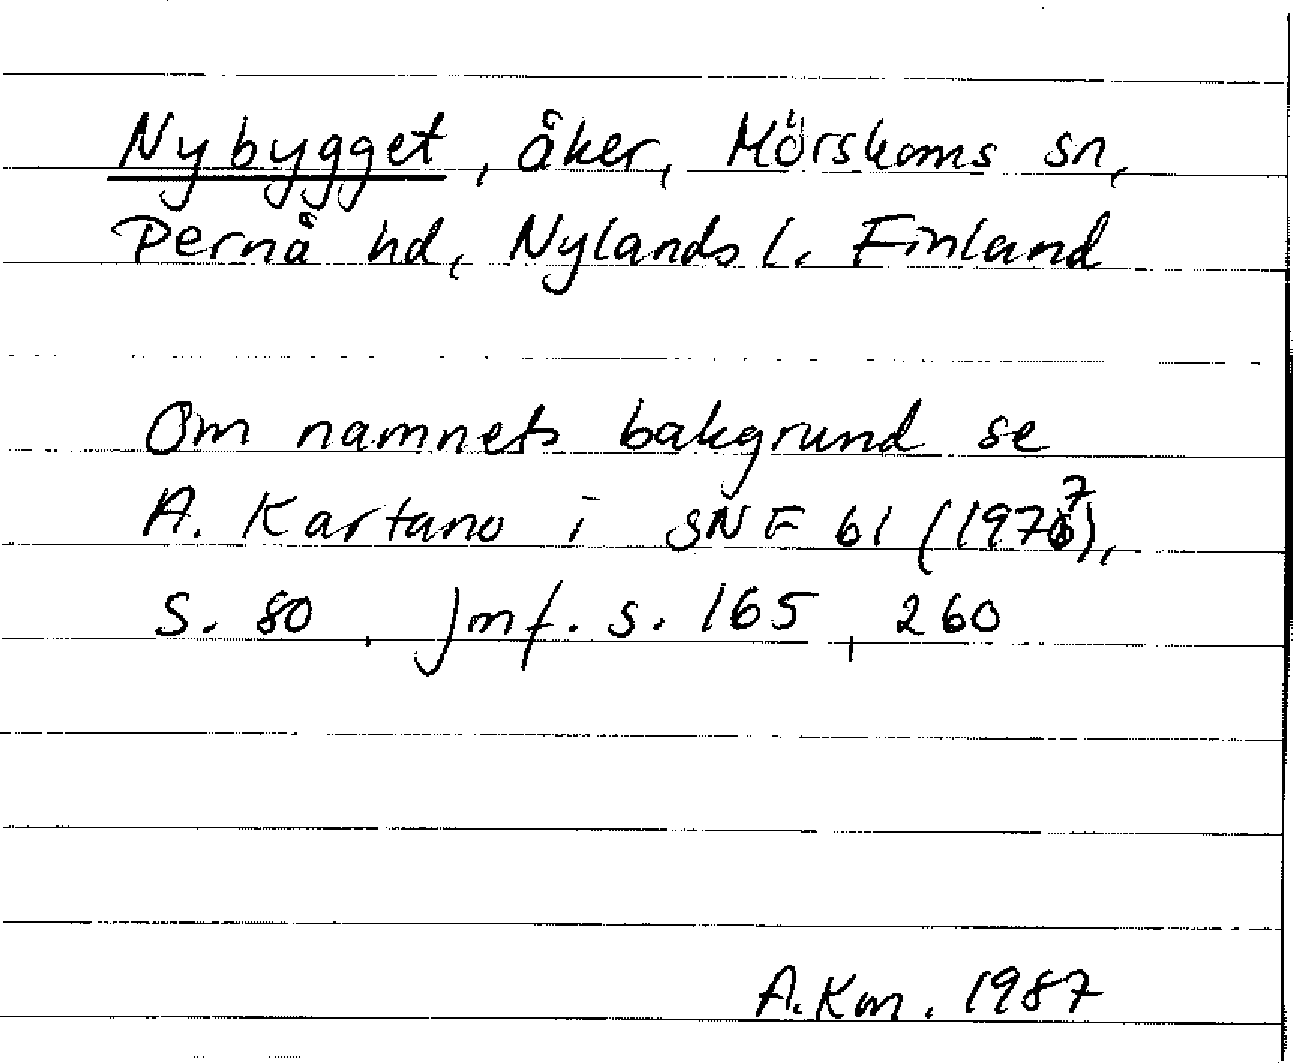 Nybygget, åker, Mörskoms sn,
Pernå hd, Nylands l. Finland
Om namnets bakgrund se
A. Kartano i SNF 61 (1977),
S. 80, Jmf. s. 165, 260
A.Km. 1987